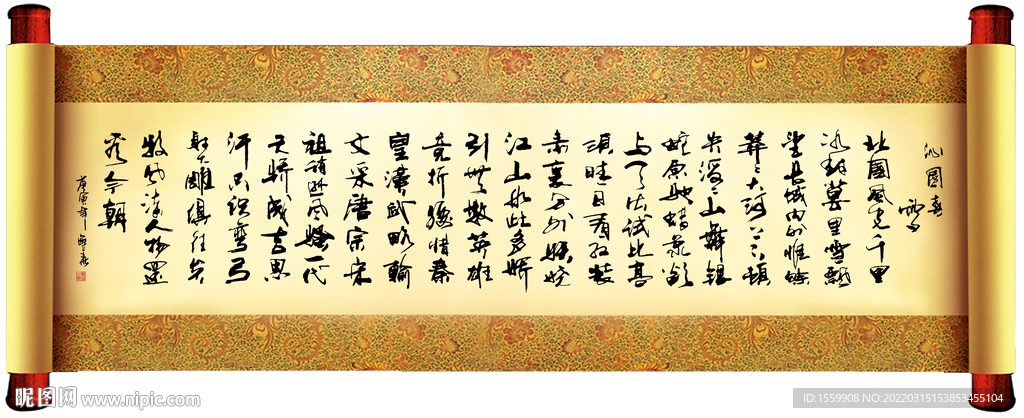 沁園春
雪
北國風光千里
冰封萬里雪飄
望長城內外惟餘
莽莽大河上下頓
失滔滔山舞銀
蛇原馳蠟象欲
與天公試比高
須晴日看紅裝
素裹分外妖嬈
江山如此多嬌
引無數英雄
競折腰惜秦
皇漢武略輸
文采唐宗宋
祖稍遜風騷一代
天驕成吉思
汗只識彎弓
射大雕俱往矣
數風流人物還
看今朝
庚寅年
昵图网 www.nipic.com
ID:1559908 NO:20220315153853455104